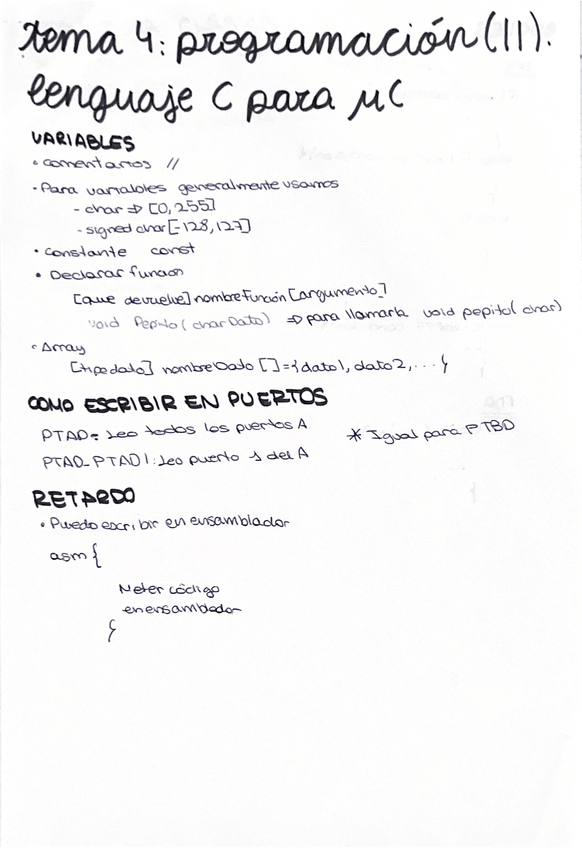 tema 4: programación (II).
lenguaje C para μC
VARIABLES
• comentarios //
• Para variables generalmente usamos
- char ⇒ [0,255]
- signed char [-128,127]
• constante const
• Declarar función
[que devuelve] nombreFunción [argumento]
void Pepito (char Dato) ⇒ para llamarla void pepito( char)
• Array
[tipo dato] nombreDato [ ] = {dato1, dato2, ... }
COMO ESCRIBIR EN PUERTOS
PTAD = Leo todos los puertos A * Igual para PTBD
PTAD_PTAD1: Leo puerto 1 del A
RETARDO
• Puedo escribir en ensamblador
asm {
Meter código
en ensamblador
}